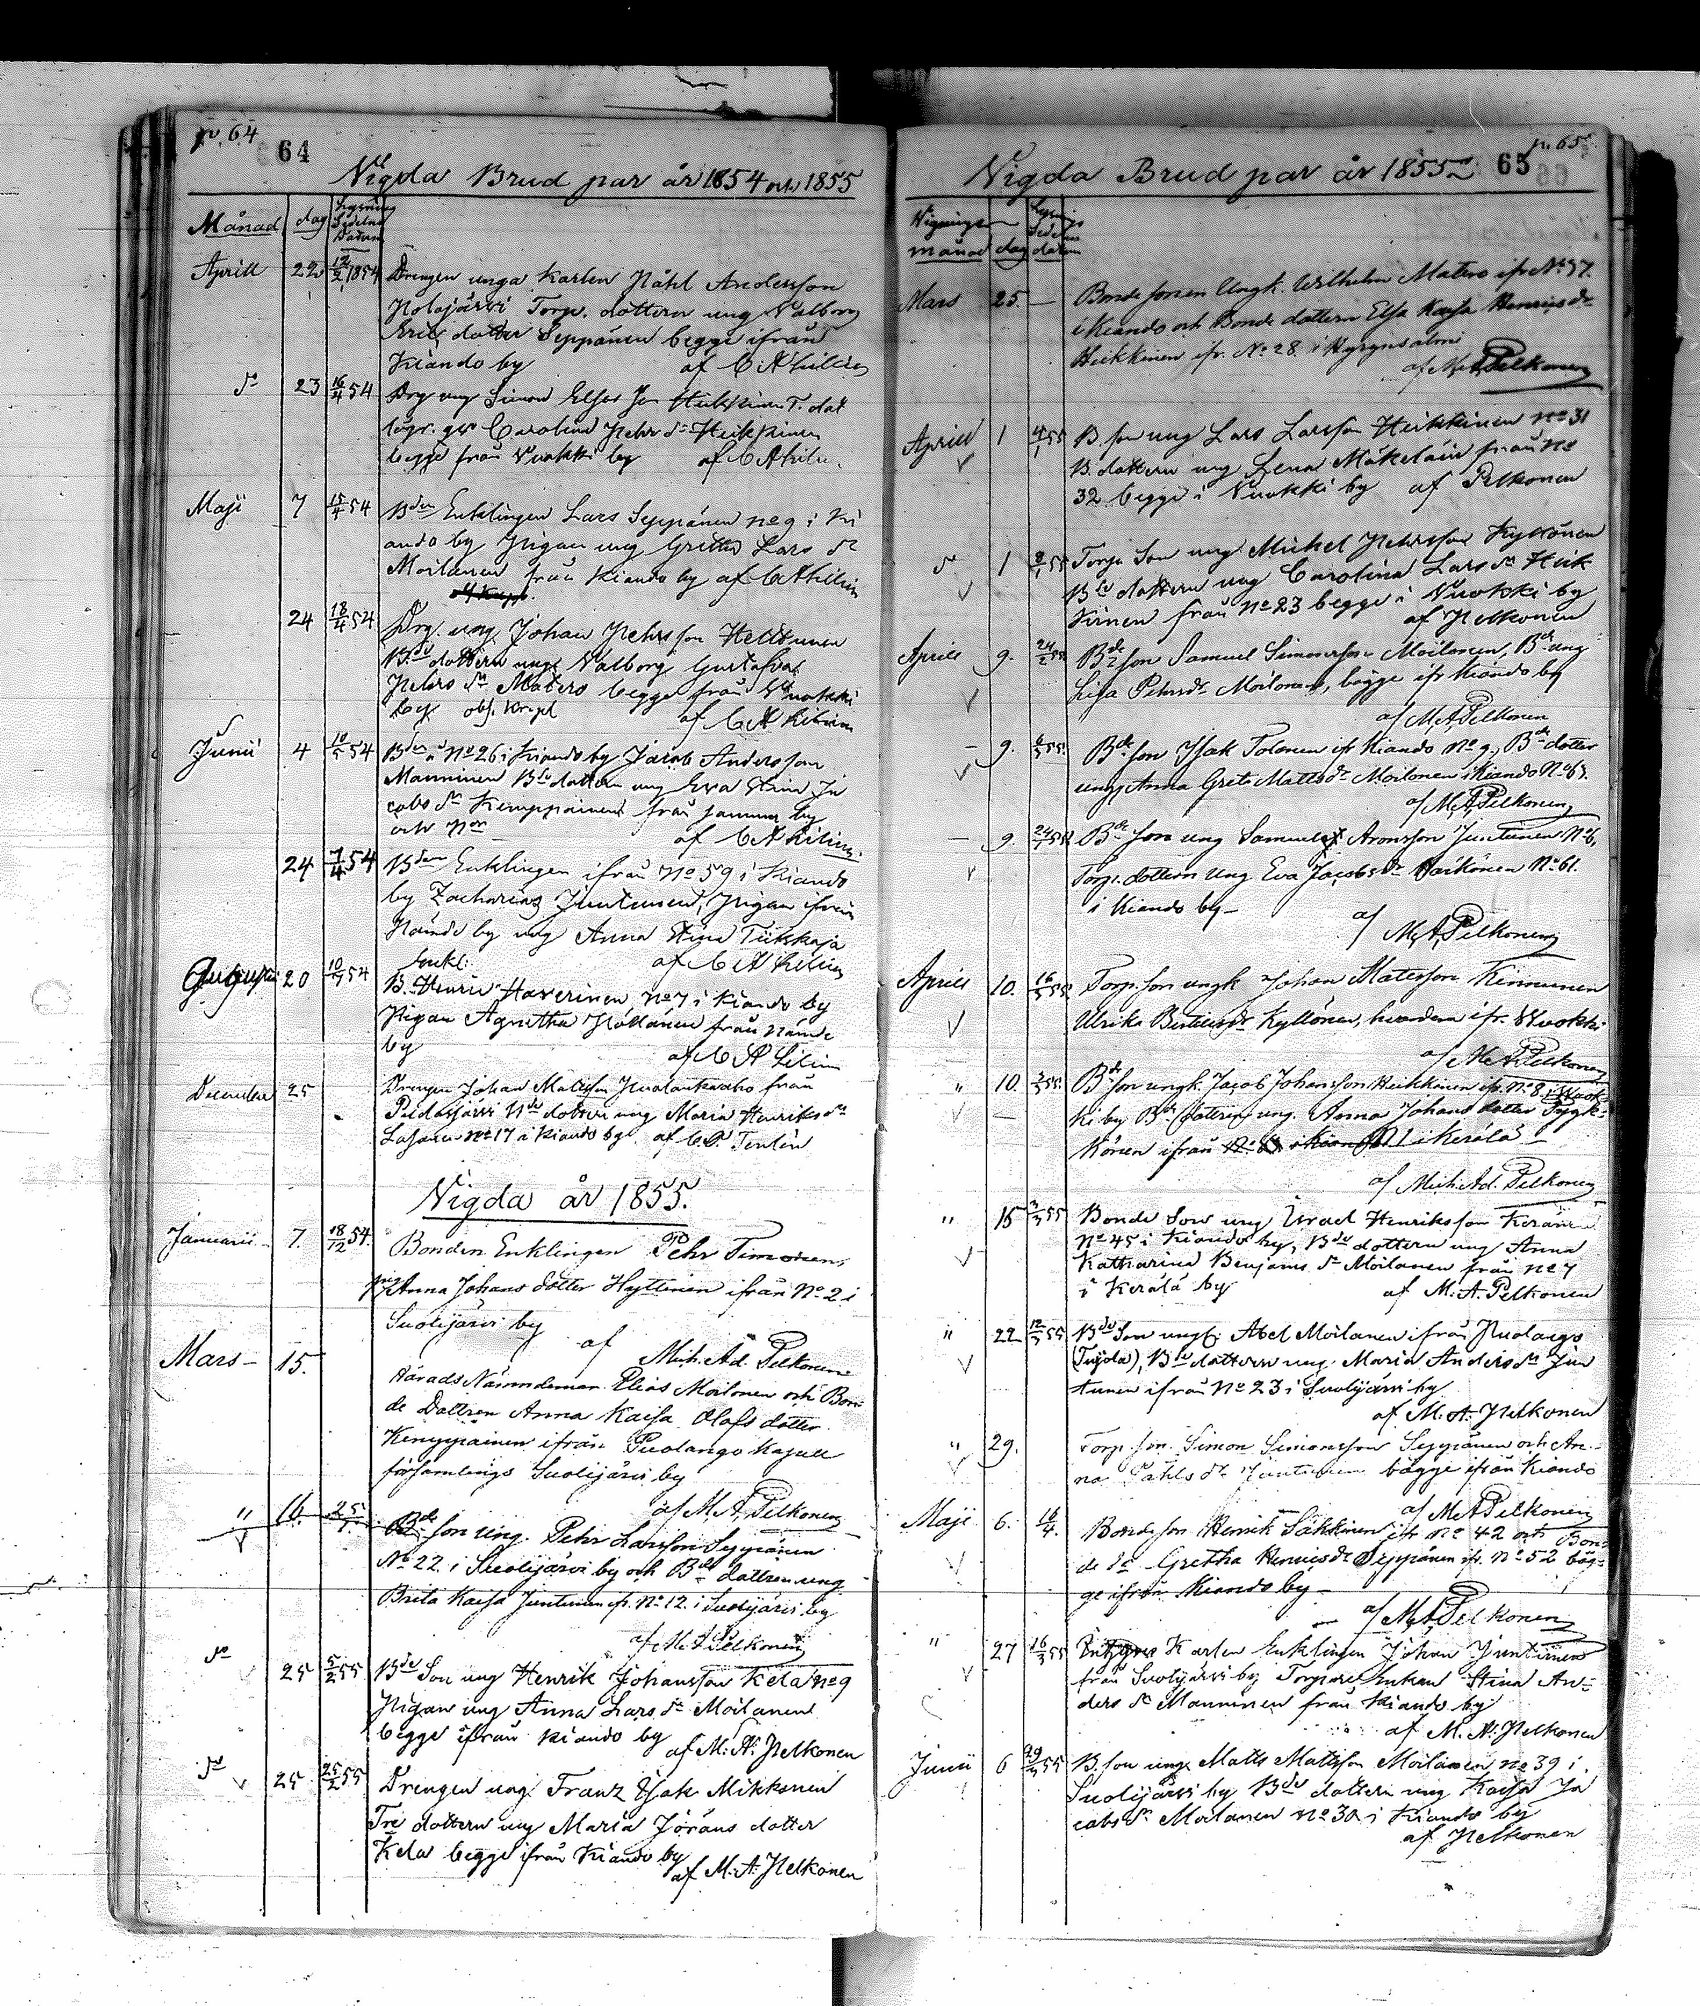 p. 64
64
Vigda Brud par år 1854 och 1855
Månad dag Lysnings Sedelns Datum
Aprill 22 12/2 1854 Drengen unga Karlen Påhl Andersson
Torp. dottern ung Valborg
Eriks dotter Seppänen begge ifrån
Kiando by af C A Lilius
dº 23 16/4 54 Drg ung Simon
Carolina Pehrs dr Heikkinen
begge från Vuokki by af C A Liliu.
Maji 7 15/4 54 Bden Enklingen Lars Seppänen no 9 i Ki
ando by Pigan ung Gretha Lars dr
Moilanen från Kiando by af C A Lilius
24 18/4 54 Drg. ung Johan Pehrsson Heikkinen
Bde dottern unga Valborg Gustafva
Pehrs dr Matero begge från Vuokki
by af C A Lilius
Junii 4 54 Bden å No 26 i Kiando by Jacob Andersson
Manninen Bde dottern ung Eva Stina Ja
cobs dr Kemppainen från samma by
och Nor af C A Lilius.
24 7/4 54 Bden Enklingen ifrån No 59 i Kiando
by Zacharias Juntunen, Pigan ifrån
Nände by ung Anna Stina Tiikkaja
af C A Lilius
Augusti 20 54 B. Henric Haverinen No 7 i Kiando by
Pigan Agnetha från Nände
by af C A Lilius
December 25 Drengen Johan Matsson från
Pudasjärvi Bde dottern ung Maria Henriks dr
No 17 å Kiando by af C.
Vigda år 1855.
Januarii 7. 18/12 54. Bonden Enklingen Pehr Timonen,
Pig. Anna Johans dotter Hyttinen ifrån No 2 i
Suolijärvi by
af Mich. Ad. Pelkonen
Mars 15. Härads Nämndeman Elias Moilonen och Bon-
de Dottren Anna Kaisa Olofs dotter
Kemppainen ifrån Puolango Kapell
församlings Suolijärvi by
af M. A. Pelkonen
" 16. Bde son ung. Pehr Larsson Seppänen
No 22. i Suolijärvi by och Bde dottren ung.
Brita Kaisa Juntunen ifr. No 12. i Suolijärvi by
af M. A. Pelkonen
dº 25 5/2 55 Bde Son ung Henrik Johansson Kela No 9
Pigan ung Anna Lars dr Moilanen
begge ifrån Kiando by
af M. A. Pelkonen
dº 25 25/2 55 Drengen ung Franz Isak Mikkonen
dottern ung Maria Jörans dotter
Kela begge ifrån Kiando by
af M. A. Pelkonen
p. 65
65
Vigda Brud par år 1855
Vignings månad dag Lysnings Sedelns datum
Mars 25. — Bonde sonen Ungk. Wilhelm Matero ifr No 57.
i Kiando och Bonde dottern Elsa Kaisa Henrics dr
Heikkinen ifr. No 28 i Hyrynsalmi
af M. A. Pelkonen
Aprill 1 55 B. son ung Lars Larsson Heikkinen No 31
B. dottern ung Lena Mäkeläin från No
32 begge i Vuokki by af Pelkonen
dº 1 55 Torp. Son ung Mickel Pehrsson Kyllönen
Bde dottern ung Carolina Lars dr Heik
kinen från No 23 begge i Vuokki by
af Pelkonen
Aprill 9. 24/2 55 Bde son Samuel Simonsson Moilonen, Bdr ung
Lisa Pehrs dr Moilonen, begge ifr Kiando by
af M. A. Pelkonen
— 9. 55. Bde son Isak Tolonen ifr Kiando No 9., Bde dotter
ung Anna Greta Matts dr Moilonen i Kiando No 63.
af M. A. Pelkonen
— 9. 55 Bde son ung Samuel Aronsson Juntunen No 6,
Torp. dottern ung Eva Jacobs dr No 61.
i Kiando by —
af M. A. Pelkonen
Aprill 10. 16/3 55 Torp. son ungk Johan Matsson Kinnunen
Ulrika Kyllönen, ifr. Vuokki
af M. A. Pelkonen
" 10. 55. Bde son ungk. Jacob Johansson Heikkinen ifr. No 8, i Vuok-
ki by Bde dottren ung. Anna Johans dotter Pyyk-
könen ifrån No 1 i Kerälä —
af Mich. Ad. Pelkonen
" 15 55 Bonde Son ung Israel Henriksson Keränen
No 45 i Kiando by, Bde dottern ung Anna
Katharina Benjams dr Moilanen från No 7
i Kerälä by af M. A. Pelkonen
" 22 12/3 55 Bde Son ungk: Abel Moilanen ifrån Puolango
Bde dottern ung Maria Anders dr Jun
tunen ifrån No 23 i Suolijärvi by
af M. A. Pelkonen
" 29. Torp. son. Simon Simonsson Seppänen och An-
na Påhls dr Juntunen bägge ifrån Kiando
af M. A. Pelkonen
Maji 6. 16/4. Bonde son Henrik Säkkinen ifr No 42 och Bon-
de dr Gretha Henrics dr Seppänen ifr. No 52 bäg-
ge ifrån Kiando by —
af M. A. Pelkonen
" 27 16/3 55 Karlen Enklingen Johan Juntunen
från Suolijärvi by Torpare Enkan Stina An-
ders dr Manninen från Kiando by
af M. A. Pelkonen
Junii 6 55 B. son ung Matts Matsson Moilanen No 39 i
Suolijärvi by Bde dottern ung Kaisa Ja
cobs dr Moilanen No 30 i Kiando by
af Pelkonen